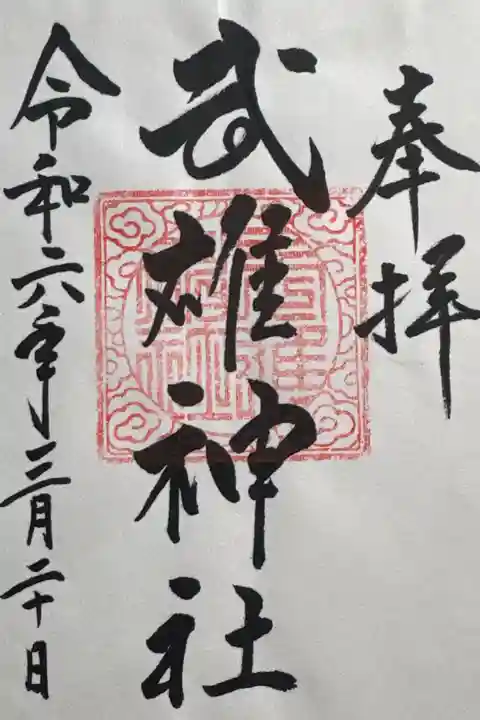 奉拝
武雄神社
令和六年三月二十日